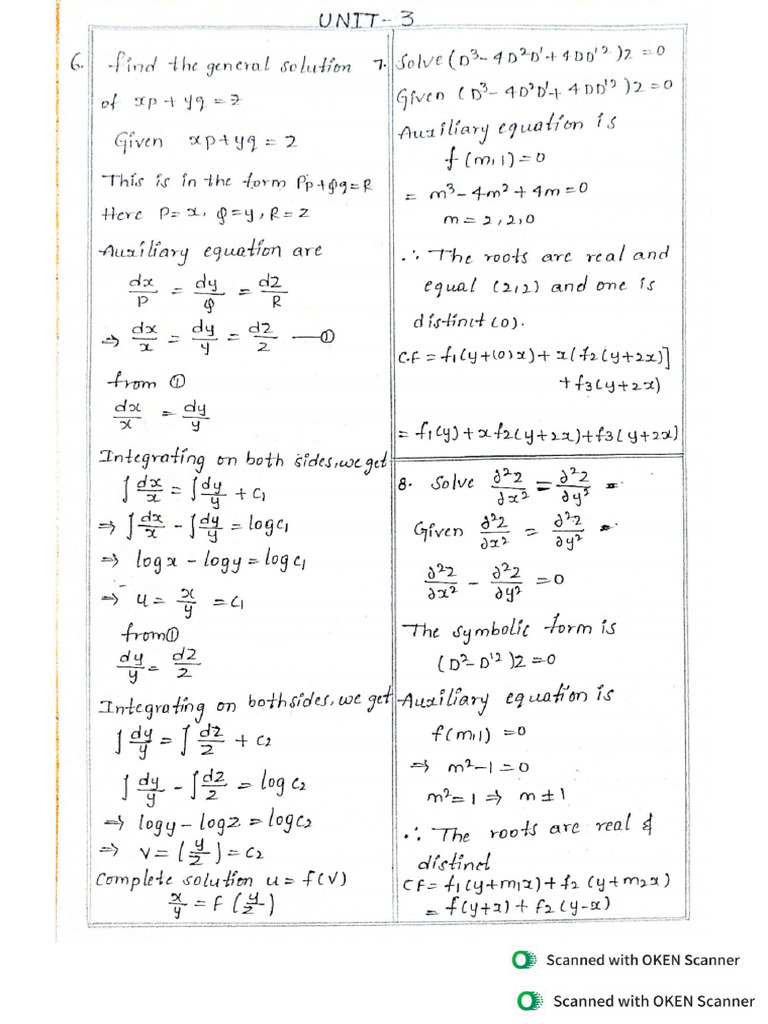 UNIT-3
6. find the general solution
of xp + yq = z
Given xp+yq = z
This is in the form Pp+Qq=R
Here P=x, Q=y, R=z
Auxiliary equation are
dx/P = dy/Q = dz/R
⇒ dx/x = dy/y = dz/z —①
from ①
dx/x = dy/y
Integrating on both sides, we get
∫dx/x = ∫dy/y + c1
⇒ ∫dx/x - ∫dy/y = logc1
⇒ logx - logy = logc1
⇒ u = x/y = c1
from①
dy/y = dz/z
Integrating on bothsides, we get
∫dy/y = ∫dz/z + c2
∫dy/y - ∫dz/z = log c2
⇒ logy - logz = logc2
⇒ v = (y/z) = c2
Complete solution u = f(v)
x/y = F(y/z)
7. Solve (D³- 4D²D'+ 4DD'²)z = 0
Given (D³- 4D²D'+ 4DD'²)z = 0
Auxiliary equation is
f(m,1) = 0
= m³-4m²+4m=0
m = 2,2,0
∴ The roots are real and
equal (2,2) and one is
distinct (0).
C.F = f1(y+(0)x) + x[f2(y+2x)]
+ f3(y+2x)
= f1(y) + xf2(y+2x)+f3(y+2x)
8. Solve ∂²z/∂x² = ∂²z/∂y²
Given ∂²z/∂x² = ∂²z/∂y²
∂²z/∂x² - ∂²z/∂y² = 0
The symbolic form is
(D²-D'²)z=0
Auxiliary equation is
f(m,1) = 0
⇒ m²-1 = 0
m²=1 ⇒ m±1
∴ The roots are real &
distinct
CF = f1(y+m1x)+f2(y+m2x)
= f(y+x) + f2(y-x)
Scanned with OKEN Scanner
Scanned with OKEN Scanner